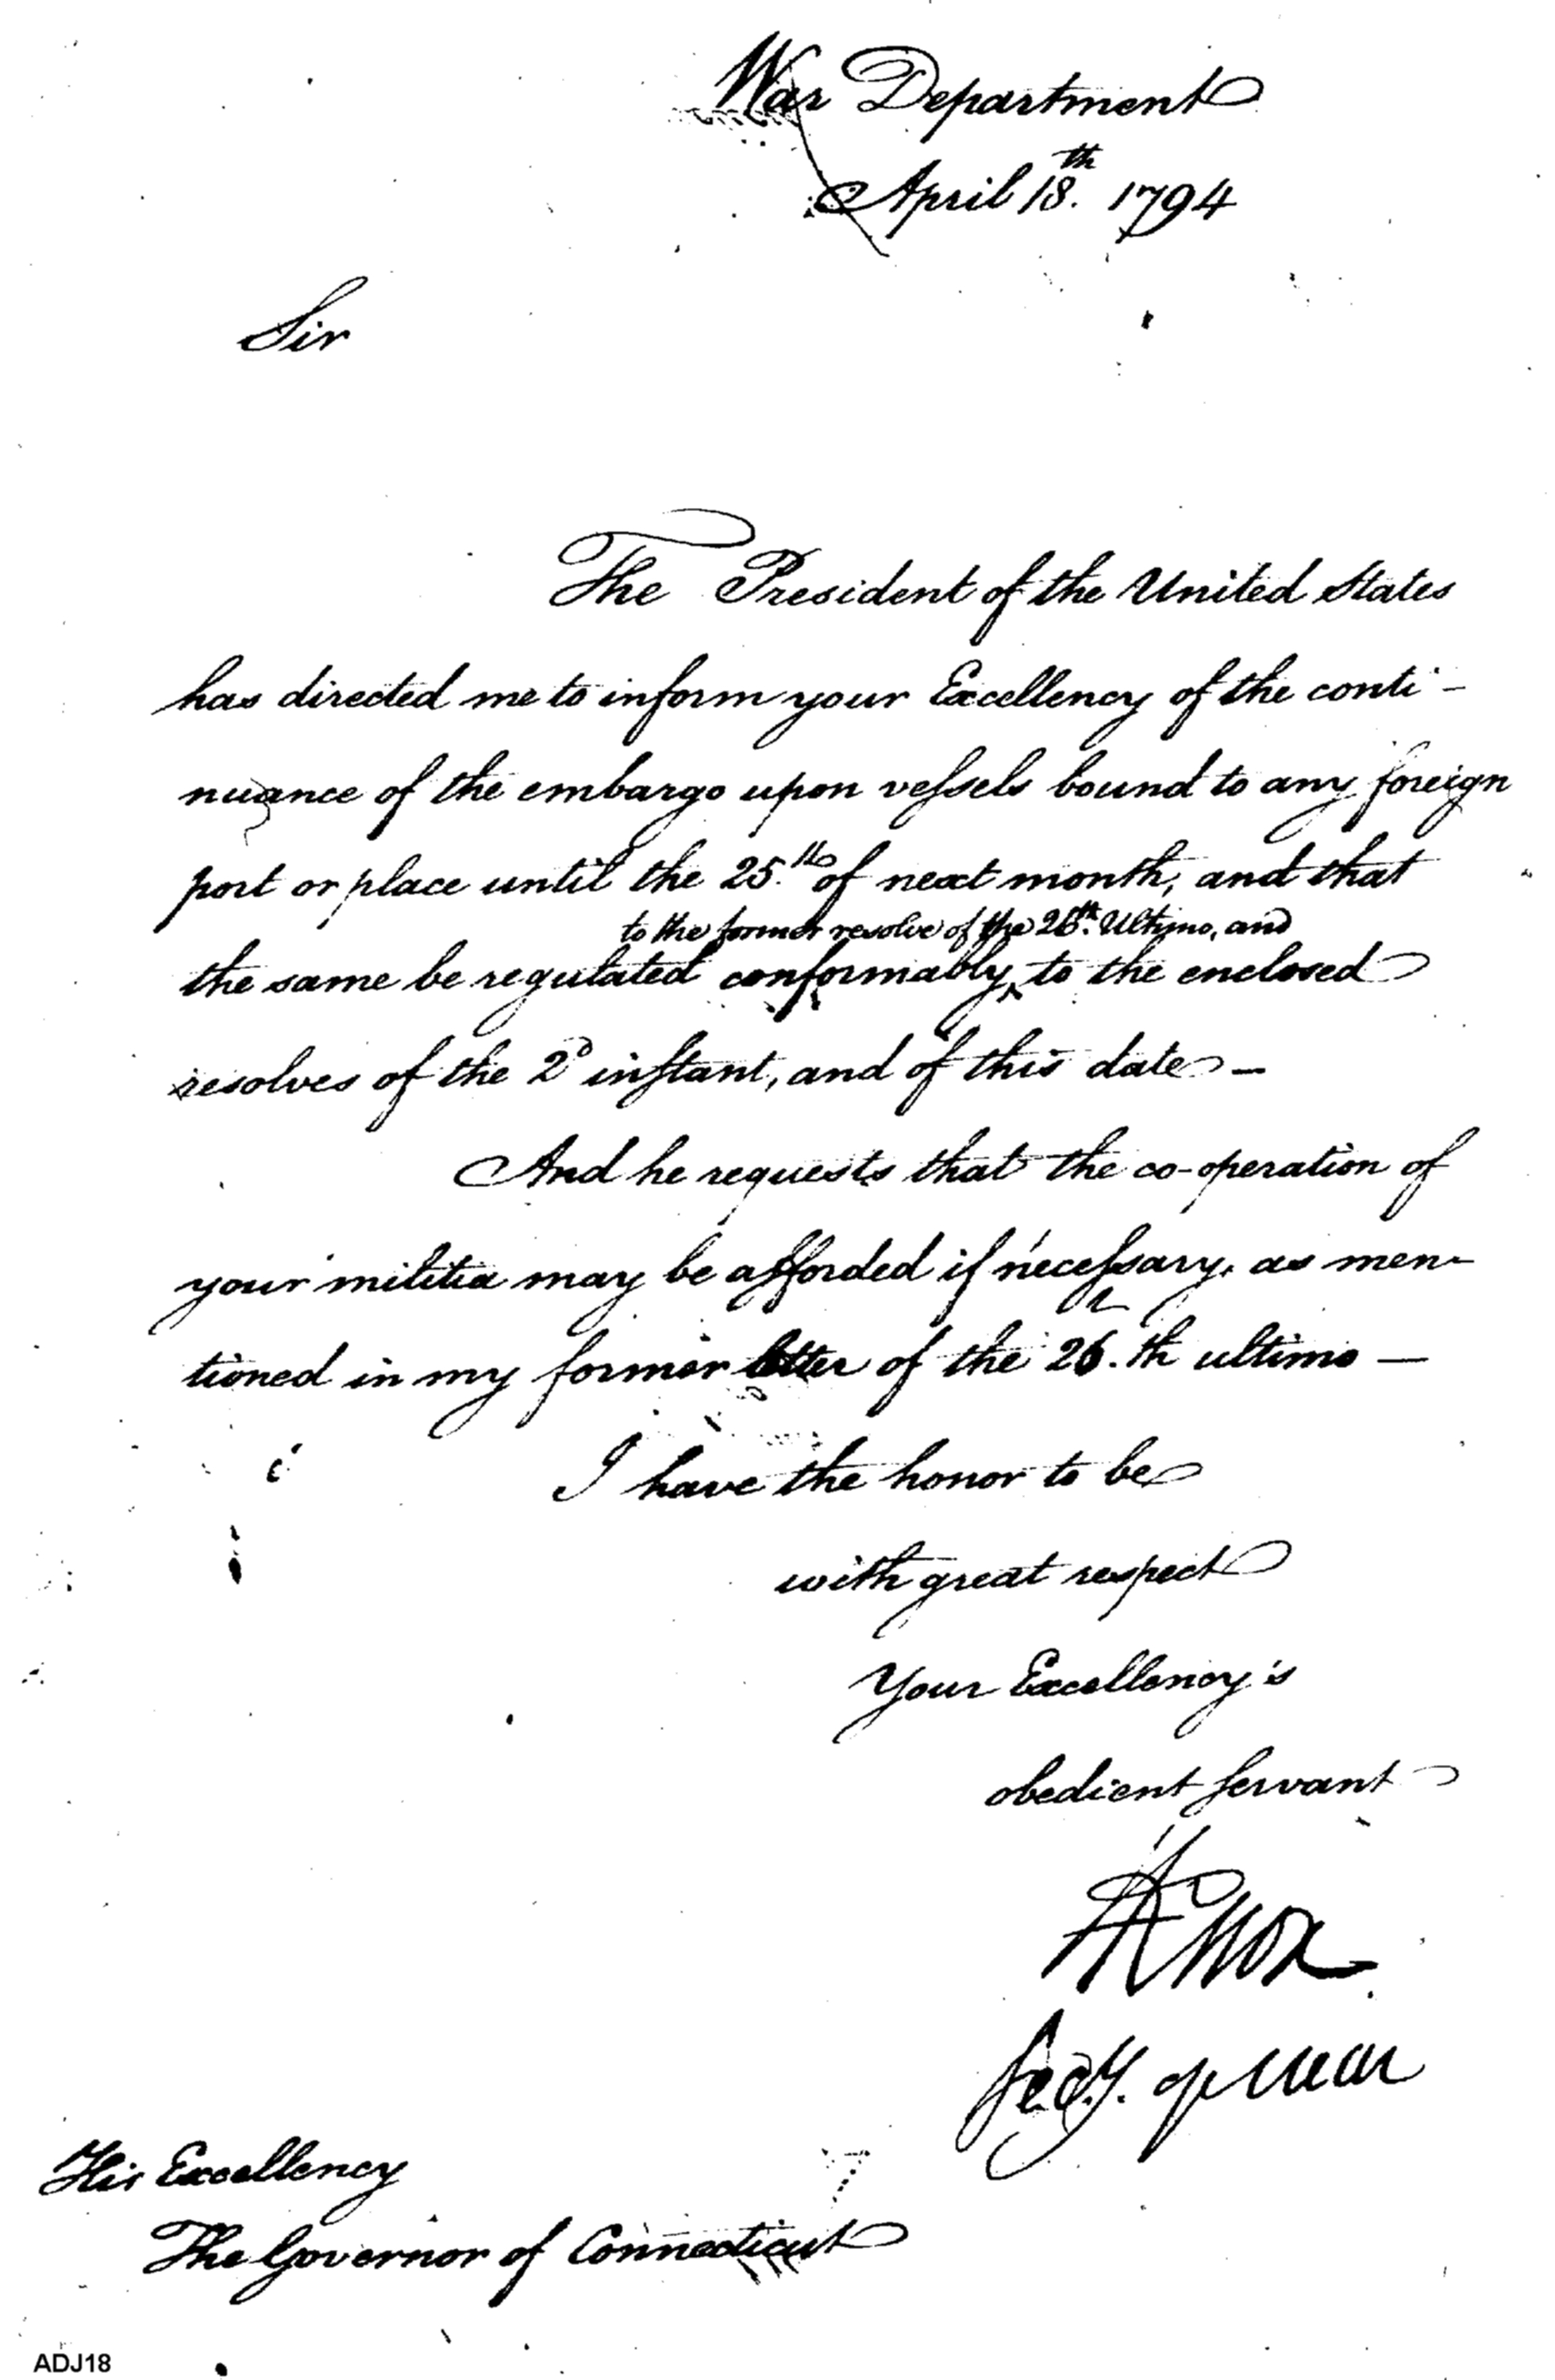 War Department
April 18.th 1794
Sir
The President of the United States
has directed me to inform your Excellency of the conti-
nuance of the embargo upon vessels bound to any foreign
port or place until the 25.th of next month, and that
to the former resolve of the 26th. Ultimo, and
the same be regulated conformably ‸ to the enclosed
resolves of the 2d instant, and of this date —
And he requests that the co-operation of
your militia may be afforded if necessary, as men-
tioned in my former letter of the 26.th ultimo —
I have the honor to be
with great respect
Your Excellency's
obedient servant
HKnox
Secy. of War
His Excellency
The Governor of Connecticut
ADJ18